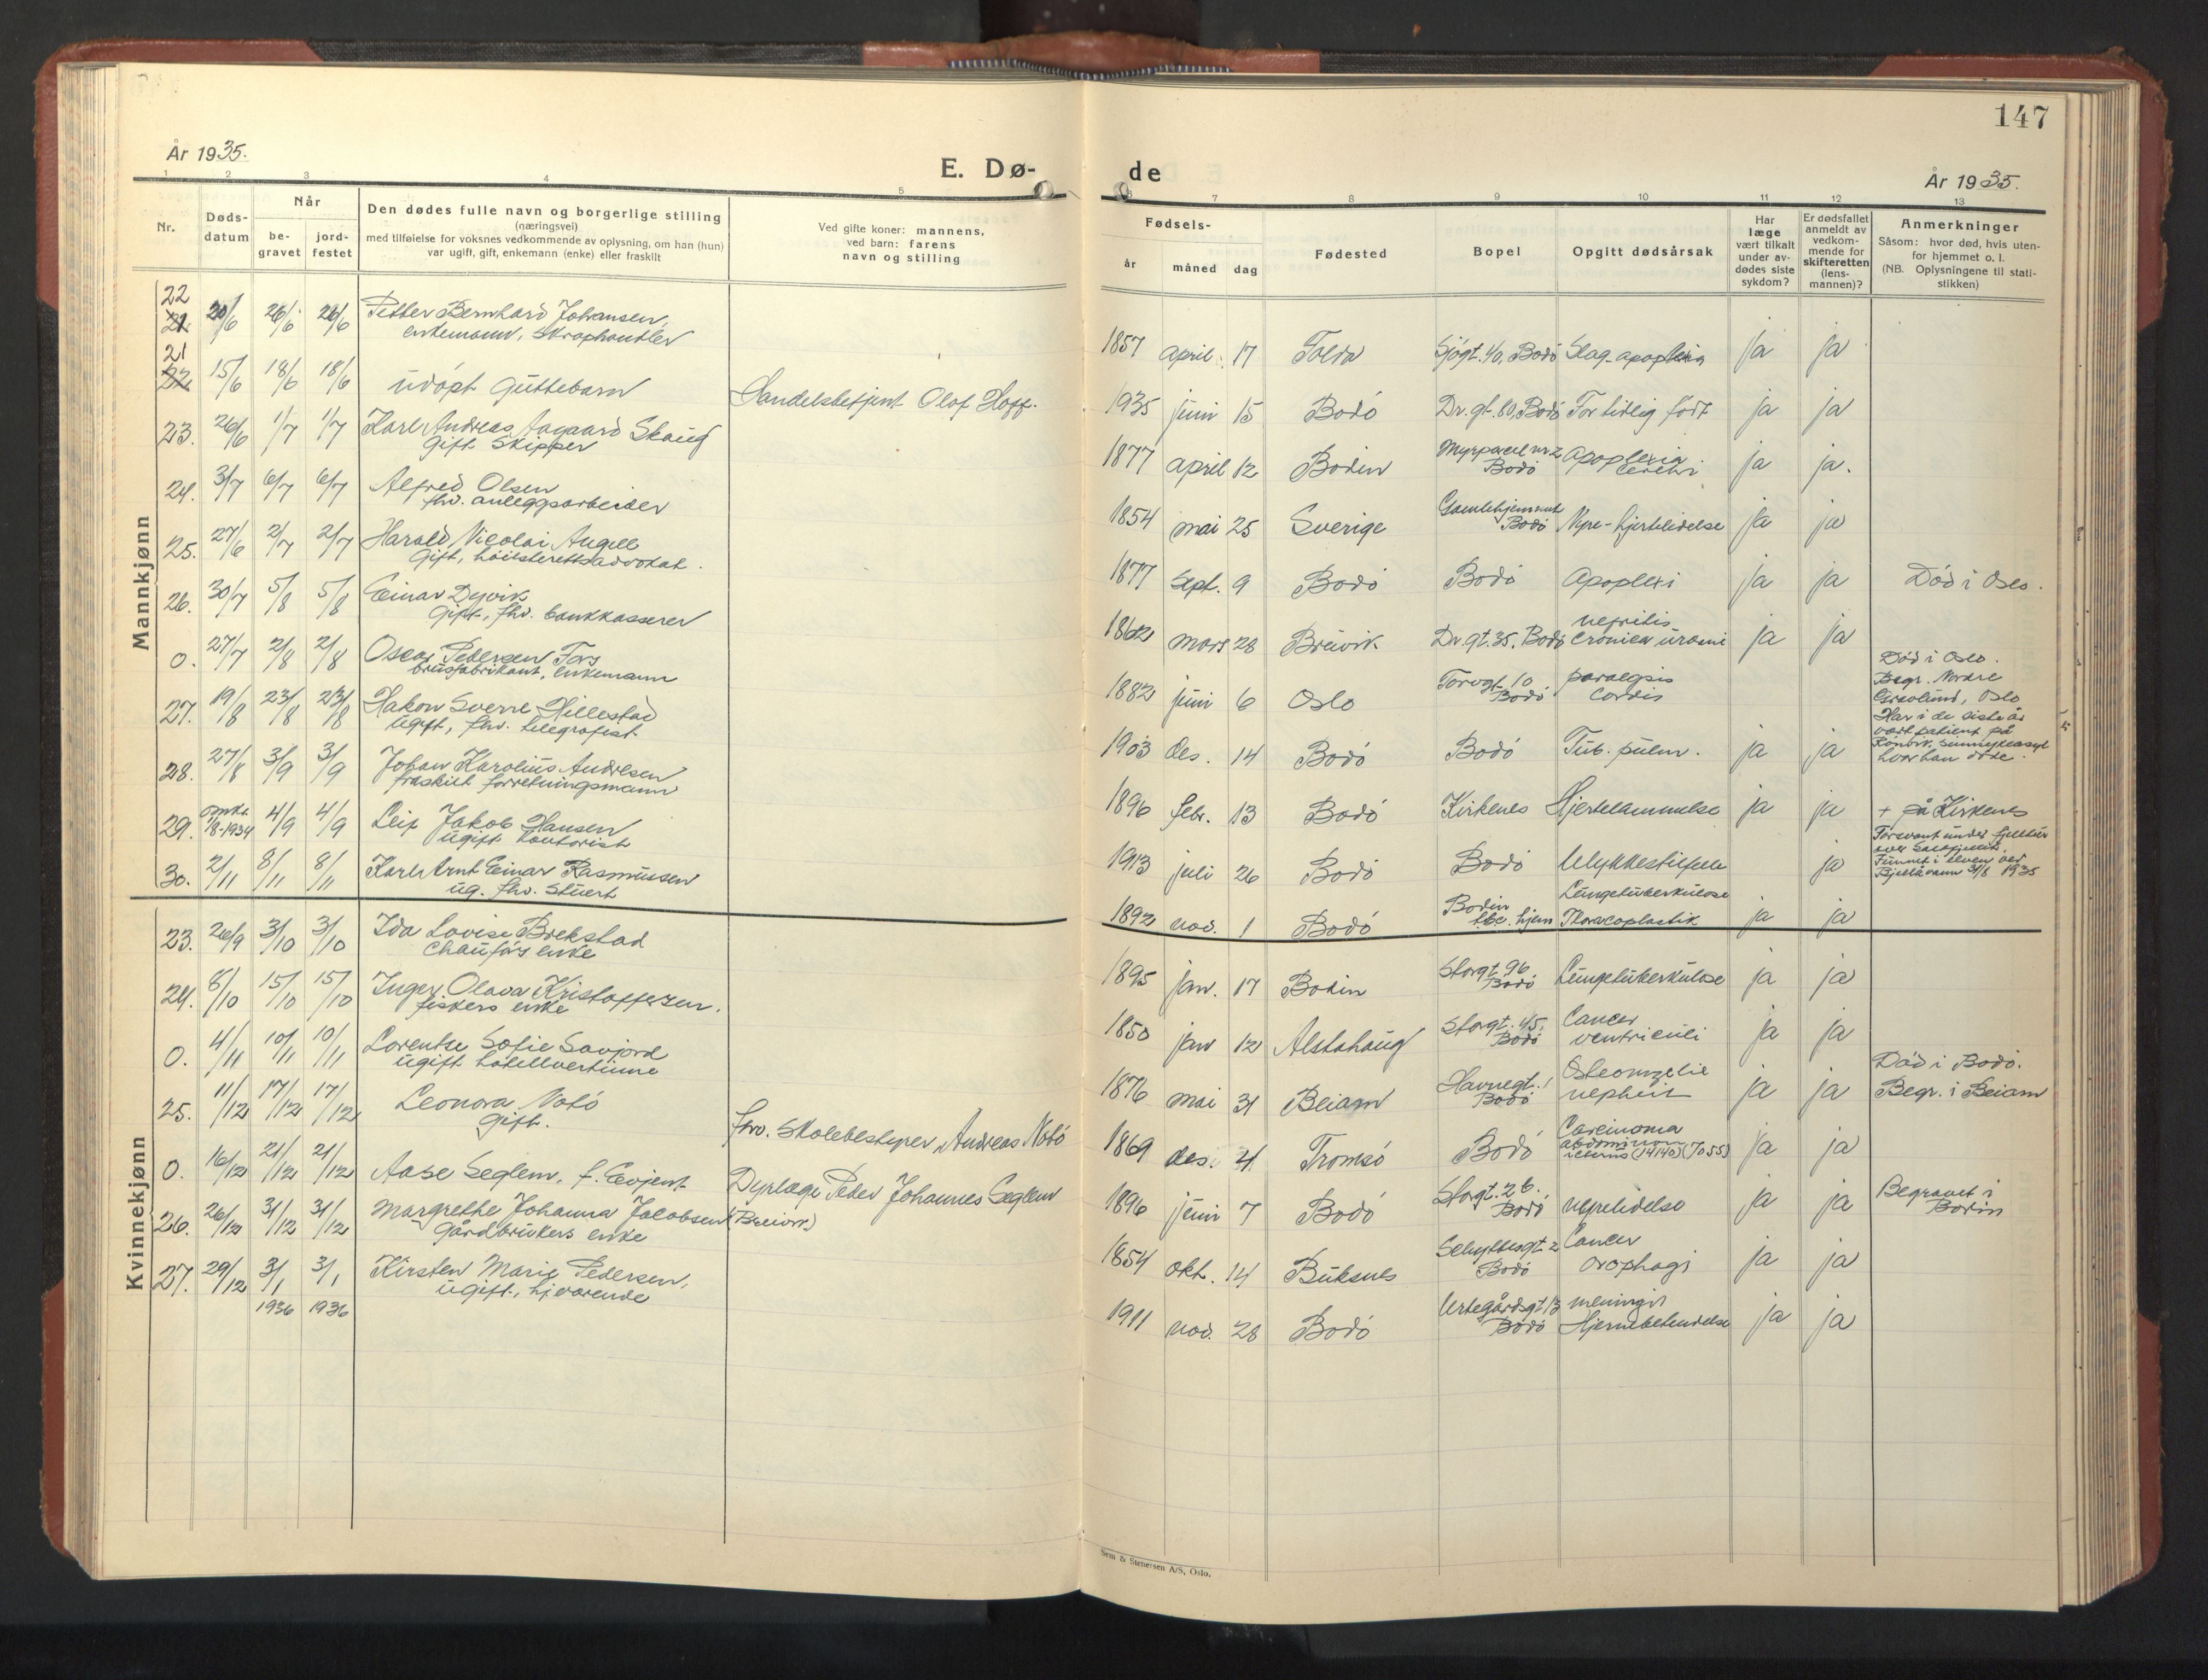 147
År 1935.
E. Dø-
de
År 1935.
1 2 3 4 5
6 7 8 9 10 11 12 13
Nr.
Døds-
datum
Når
be-
gravet
jord-
festet
Den dødes fulle navn og borgerlige stilling
(næringsvei)
med tilføielse for voksnes vedkommende av oplysning, om han (hun)
var ugift, gift, enkemann (enke) eller fraskilt
Ved gifte koner: mannens,
ved barn: farens
navn og stilling
Fødsels-
år måned dag
Fødested
Bopel
Opgitt dødsårsak
Har
læge
vært tilkalt
under av-
dødes siste
sykdom?
Er dødsfallet
anmeldt av
vedkom-
mende for
skifteretten
(lens-
mannen)?
Anmerkninger
Såsom: hvor død, hvis uten-
for hjemmet o. l.
(NB. Oplysningene til stati-
stikken)
Mannkjønn
22
21 20/6 26/6 26/6 Petter Bernhard Johansen,
enkemann, skraphandler
1857 april 17 Folda Sjøgt. 40, Bodó Slag-apoplexia ja ja
21
22 15/6 18/6 18/6 udöpt guttebarn Handelsbetjent Olaf Hoff.
1935 juni 15 Bodó Dr. gt. 80, Bodó For tidlig födt ja ja
23. 26/6 1/7 1/7 Karl Andreas Aagaard Skaug
gift skipper
1877 april 12 Bodin Myrparcel nr 2
Bodó Apoplexia
cerebri ja ja.
24. 3/7 6/7 6/7 Alfred Olsen
fhv. anleggsarbeider
1854 mai 25 Sverige Gamlehjemmet
Bodó Nyre-hjertelidelse ja ja
25. 27/6 2/7 2/7 Harald Nicolai Angell
gift, höiesterettsadvokat.
1877 Sept. 9 Bodó Bodó Apoplexi ja ja Död i Oslo.
26. 30/7 5/8 5/8 Einar Dyvik
gift, fhv. bankkasserer
1862 mars 28 Breivik Dr. gt. 35, Bodó nefritis
cronica uræmi ja ja
0. 27/7 2/8 2/8 Oscar Pedersen Fors
brusfabrikant, enkemann
1882 juni 6 Oslo Torvgt. 10
Bodó
cordis
Död i Oslo.
Begr. Nordre
Gravlund, Oslo
27. 19/8 23/8 23/8 Hakon Sverre Hillestad
ugift, fhv. telegrafist
1903 des. 14 Bodó Bodó Tub. pulm. ja ja
Har i de siste år
vært patient på
Rönvik sinnsykeasyl
hvor han döde.
28. 27/8 3/9 3/9 Johan Karolius Andresen
fraskilt forretningsmann
1896 febr. 13 Bodó Kirkenes Hjertelammelse ja ja + på Kirkenes
29. omkr.
1/8-1934 4/9 4/9 Leif Jakob Hansen
ugift kontorist
1913 juli 26 Bodó Bodó Ulykkestilfelle ja
Forsvant under fjelltur
over Saltfjellet.
Funnet i elven ved
Bjellåvann 31/8 1935
30. 2/11 8/11 8/11 Karl Arnt Einar Rasmussen
ug. fhv. stuert
1892 nov. 1 Bodó Bodin
tbc. hjem Lungetuberkulose
Thoracoplastik ja ja
Kvinnekjønn
23. 26/9 3/10 3/10 Ida Lovise Brekstad
chauförs enke
1895 jan. 17 Bodin Storgt. 96
Bodó Lungetuberkulose ja ja
24. 8/10 15/10 15/10 Inger Olava Kristoffersen.
fiskers enke
1850 jan 12 Alstahaug Storgt. 45,
Bodó Cancer
ventriculi ja ja
0. 4/11 10/11 10/11 Lorentse Sofie Savjord
ugift hotellvertinne
1876 mai 31 Beiarn Havnegt. 1
Bodó ja ja Död i Bodó.
Begr. i Beiarn
25. 11/12 17/12 17/12 Leonora Notó
gift. fhv. Skolebestyrer Andreas Notó
1869 des. 4 Tromsó Bodó Carcinoma
ja ja
0. 16/12 21/12 21/12 Aase Seglem, f. Evjent Dyrlæge Peder Johannes Seglem
1896 juni 7 Bodó Storgt. 26.
Bodó nyrelidelse ja ja Begravet i
Bodin
26. 26/12 31/12 31/12 Margrethe Johanna Jakobsen (Breivik)
gårdbrukers enke
1854 okt. 14 Buksnes Schyttesgt 2
Bodó Cancer
ja ja
27. 29/12 3/1 3/1 Kirsten Marie Pedersen,
ugift, hj.værende
1936 1936
1911 nov. 28 Bodó Urtegårdsgt 13
Bodó meningit
Hjernebetendelse ja ja
Sem & Stenersen A/S, Oslo.